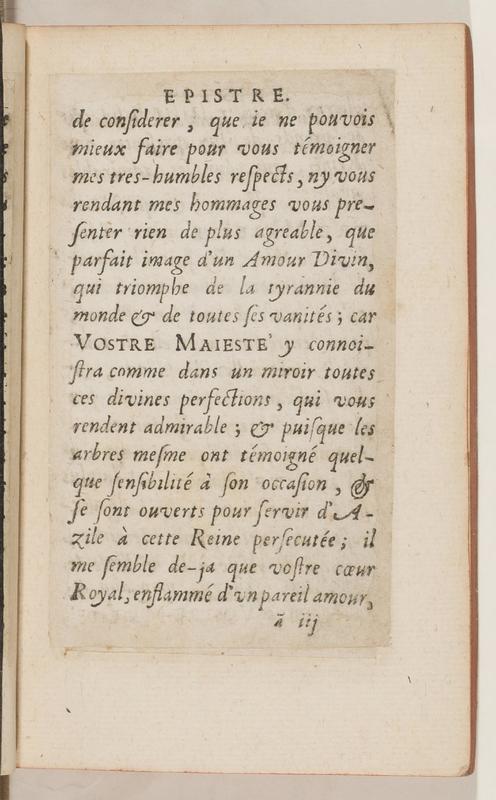 EPISTRE.
de considerer, que ie ne pouvois
mieux faire pour vous témoigner
mes tres-humbles respects, ny vous
rendant mes hommages vous pre-
senter rien de plus agreable, que
parfait image d'un Amour Divin,
qui triomphe de la tyrannie du
monde & de toutes ses vanités; car
VOSTRE MAIESTE' y connoi-
stra comme dans un miroir toutes
ces divines perfections, qui vous
rendent admirable; & puisque les
arbres mesme ont témoigné quel-
que sensibilité à son occasion, &
se sont ouverts pour servir d'A-
zile à cette Reine persecutée; il
me semble de-ja que vostre cœur
Royal, enflammé d'vn pareil amour,
ã iij